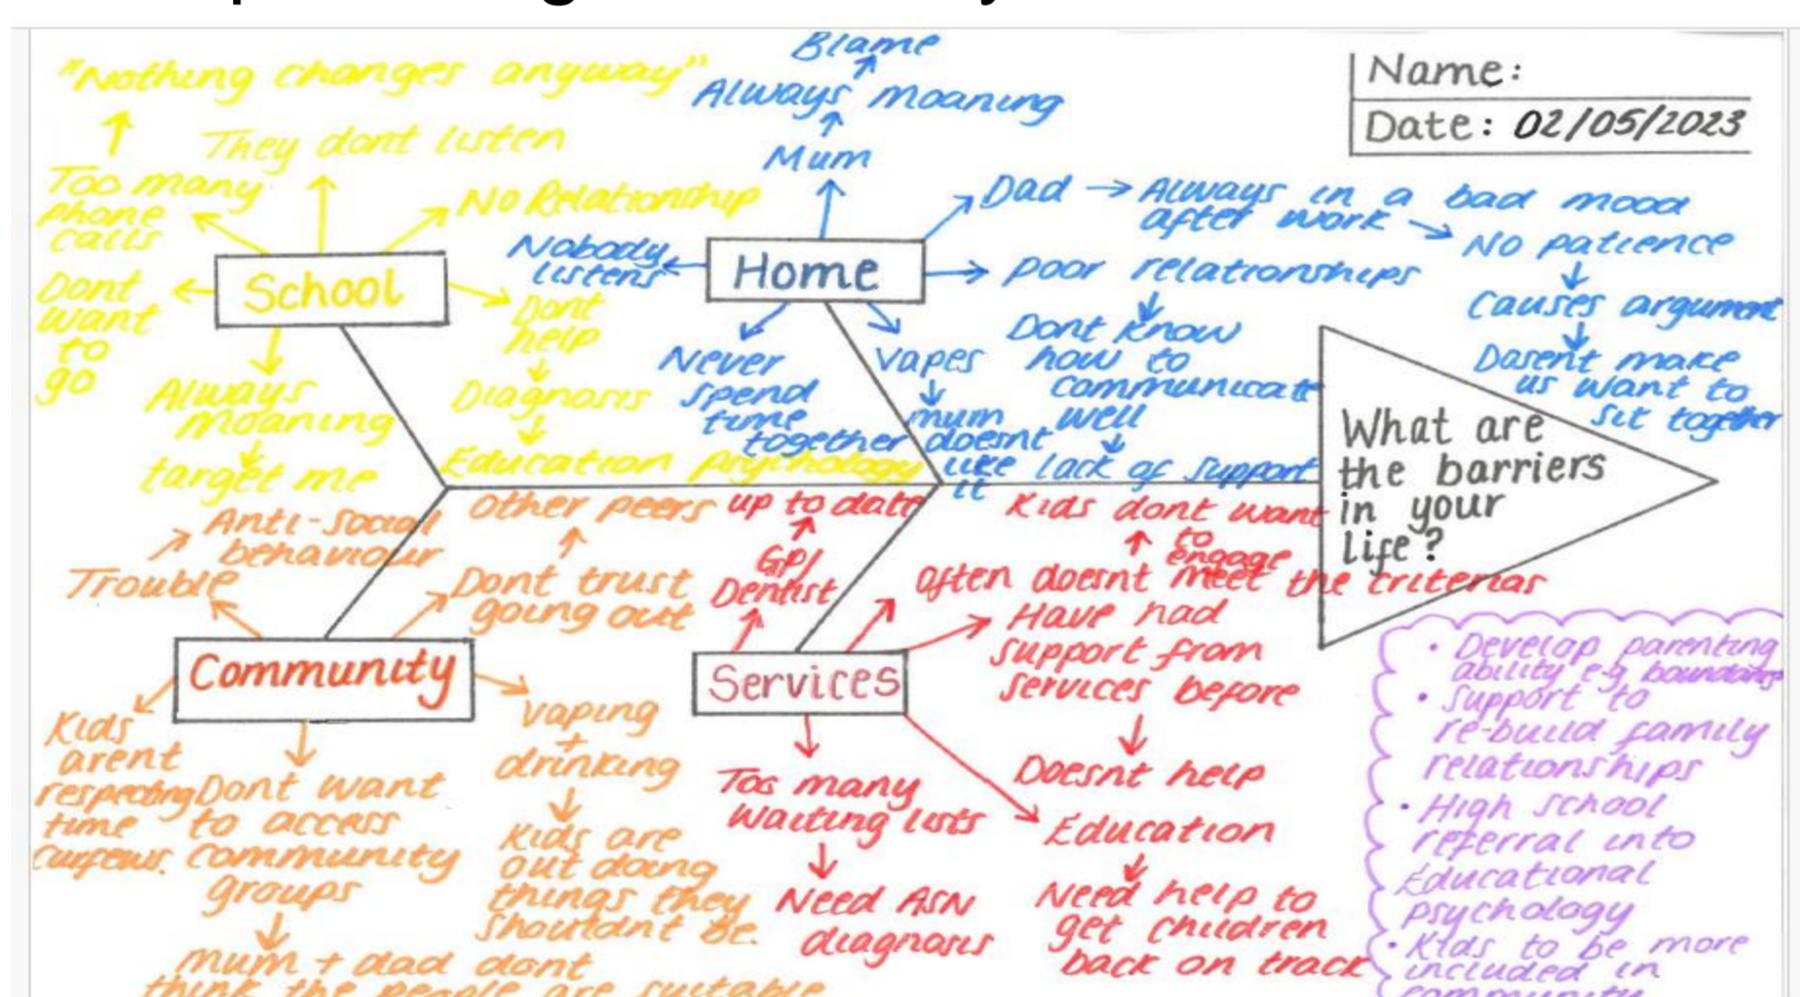 "Nothing changes anyway"
Too many
phone
calls
They dont listen
No Relationship
School
Dont
want
to
go
Always
moaning
target me
Dont
help
Diagnosis
Education psychology
Blame
Always moaning
Mum
Nobody
listens
Home
Dad → Always in a bad mood
after work
No patience
Causes argument
Dasent make
us want to
sit together
poor relationships
Dont know
how to
communicate
well
lack of support
Never
spend
time
together
Vapes
mum
doesnt
like
it
Name:
Date: 02/05/2023
What are
the barriers
in your
life?
Anti-social
behaviour
Trouble
other peers
Dont trust
going out
Community
Kids
arent
respecting
time
curfews.
Dont want
to access
community
groups
mum + dad dont
think the people are suitable
vaping
+
drinking
Kids are
out doing
things they
shouldnt be.
up to date
GP/
Dentist
Kids dont want
to
engage
often doesnt meet the criterias
Have had
support from
services before
Doesnt help
Services
Too many
waiting lists
Need ASN
diagnosis
Education
Need help to
get children
back on track
• Develop parenting
ability e.g boundaries
• Support to
re-build family
relationships
• High school
referral into
Educational
psychology
• Kids to be more
included in
community